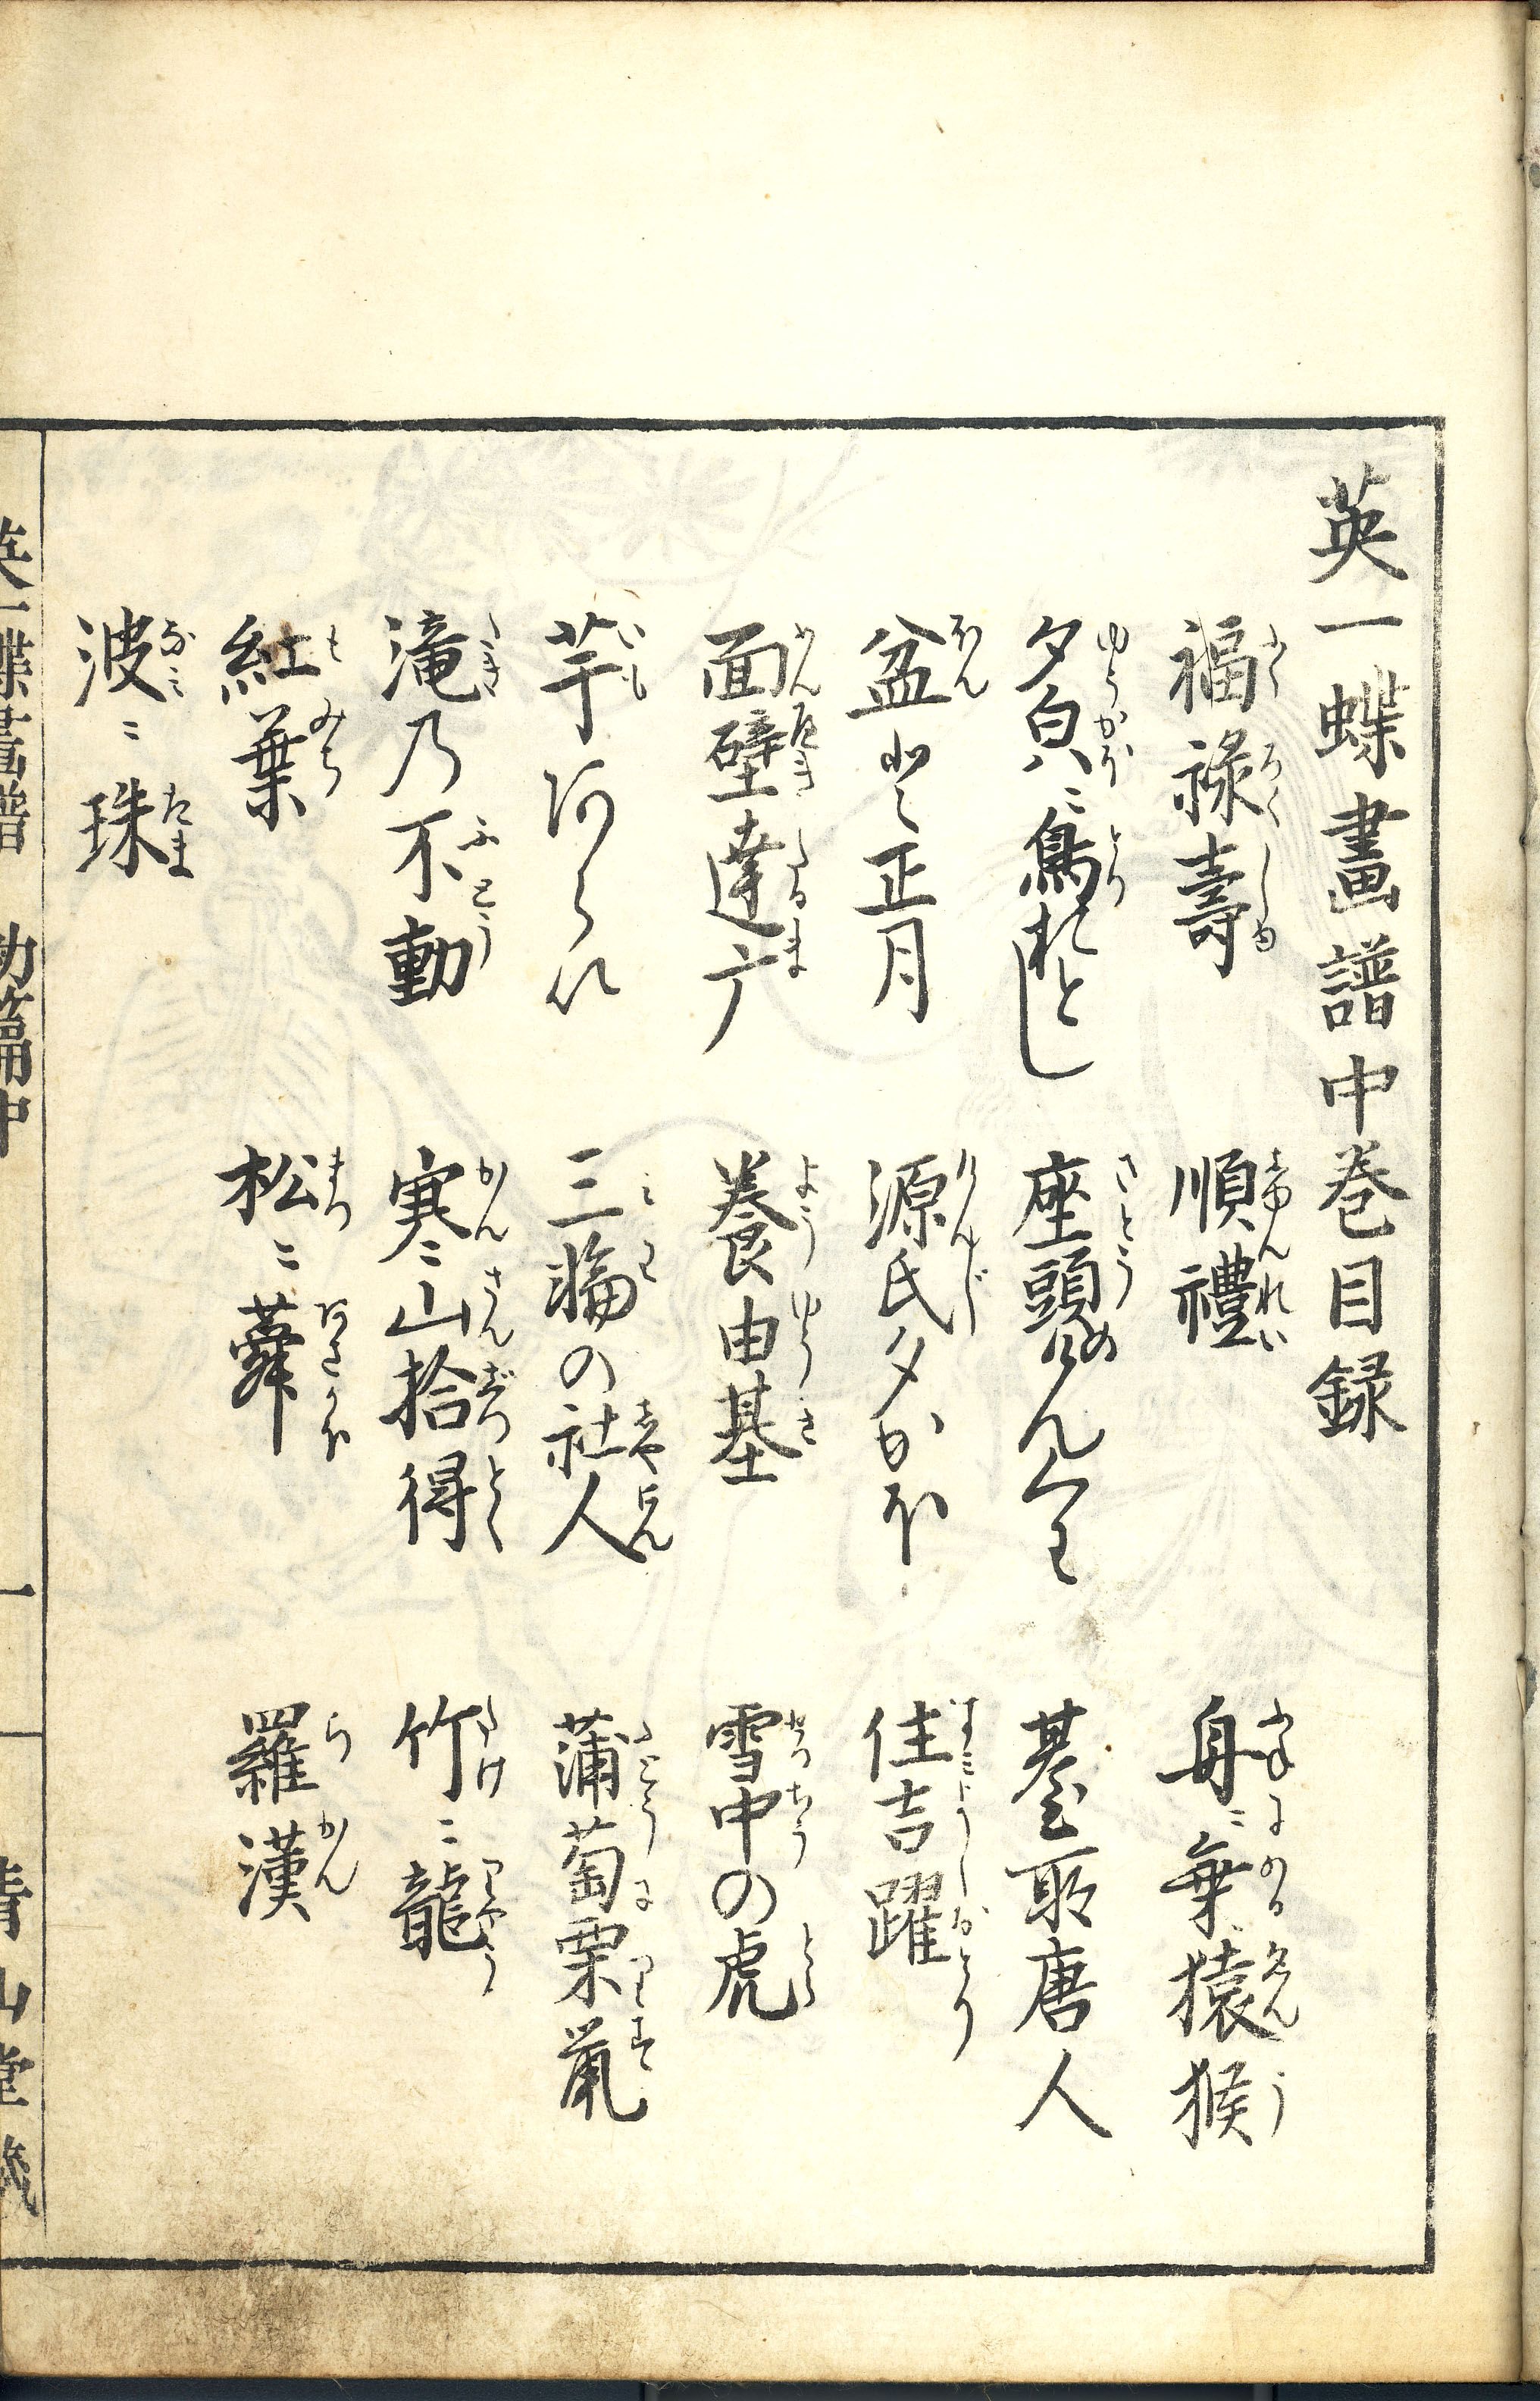 英一蝶畫譜中巻目録
福禄壽 順禮 舟ニ乗猿猴
夕皃ニ鳥おとし 座頭のんくわ 碁取唐人
盆と正月 源氏夕かほ 住吉躍
面壁達广 養由基 雪中の虎
芋あらひ 三輪の社人 蒲萄栗鼠
滝乃不動 寒山拾得 竹ニ龍
紅葉 松ニ蕣 羅漢
波ニ珠
英一蝶畫譜 初篇中 一 青山堂蔵